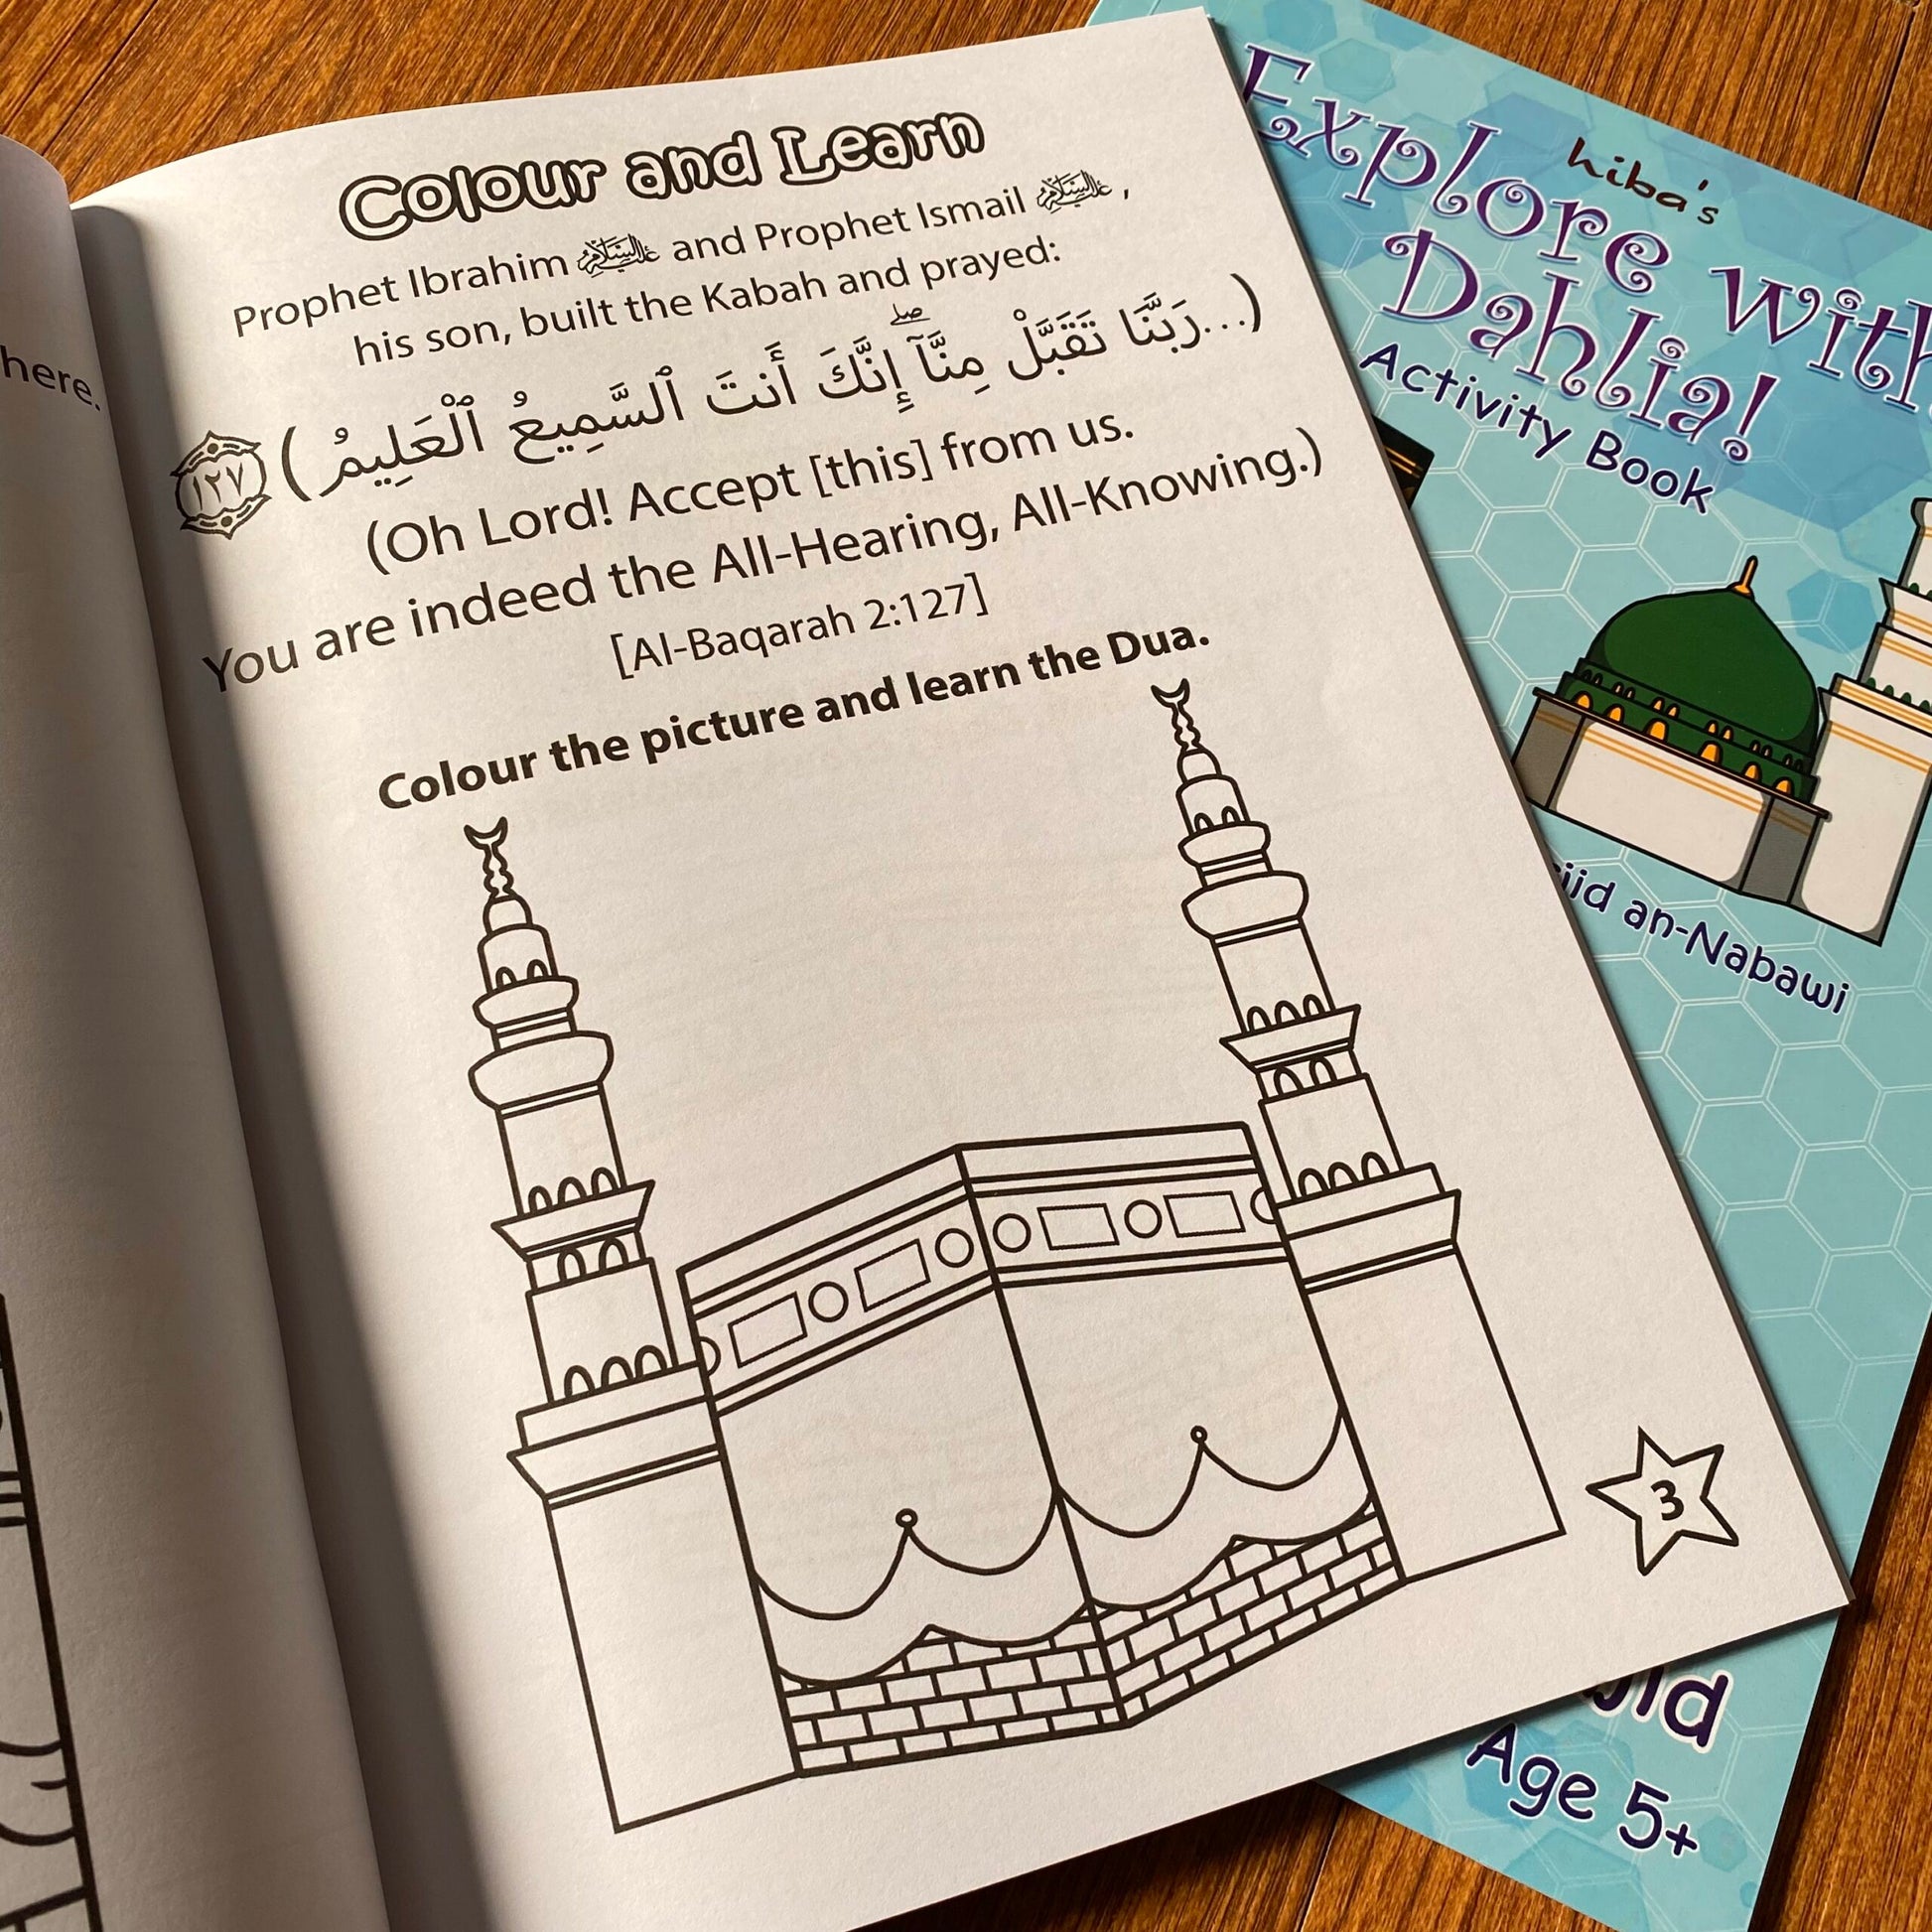 here.
Colour and Learn
Prophet Ibrahim عليه السلام and Prophet Ismail عليه السلام,
his son, built the Kabah and prayed:
(...رَبَّنَا تَقَبَّلْ مِنَّآ ۖ إِنَّكَ أَنتَ ٱلسَّمِيعُ ٱلْعَلِيمُ) ١٢٧
(Oh Lord! Accept [this] from us.
You are indeed the All-Hearing, All-Knowing.)
[Al-Baqarah 2:127]
Colour the picture and learn the Dua.
3
hiba's
Explore with
Dahlia!
Activity Book
an-Nabawi
Age 5+